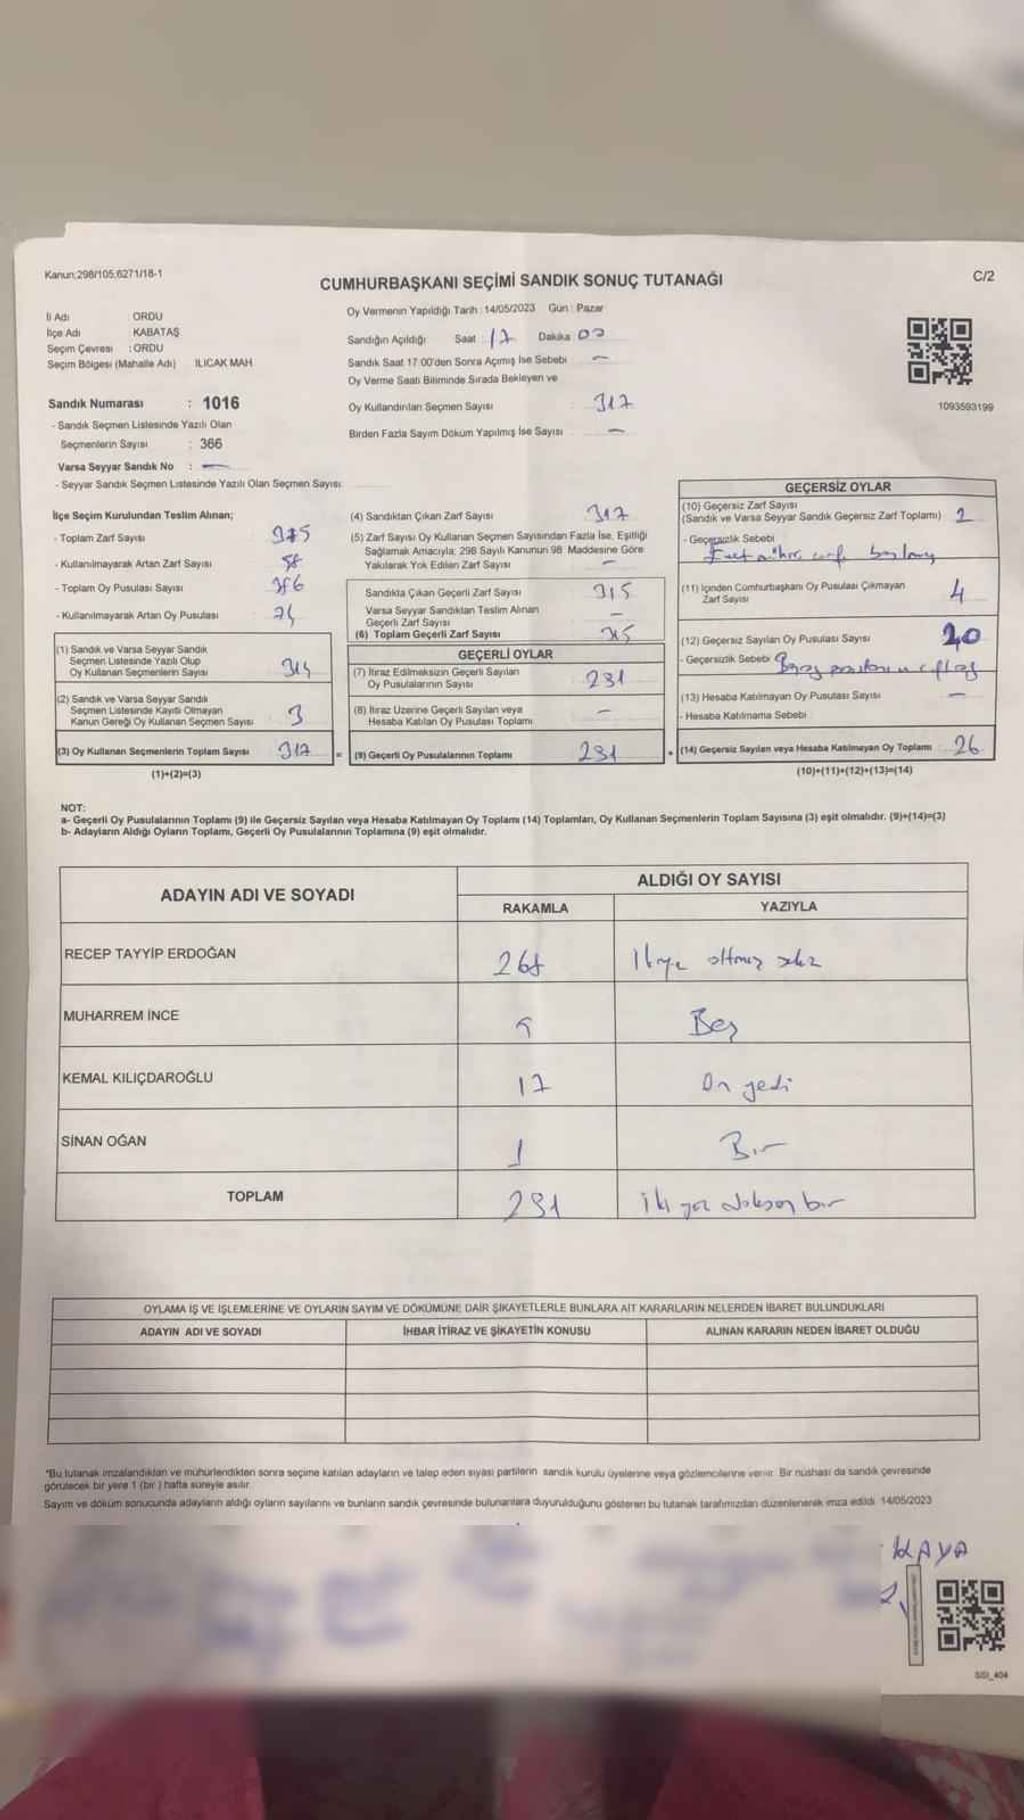 Kanun:298/105;6271/18-1
CUMHURBAŞKANI SEÇİMİ SANDIK SONUÇ TUTANAĞI
C/2
İl Adı ORDU
İlçe Adı KABATAŞ
Seçim Çevresi : ORDU
Seçim Bölgesi (Mahalle Adı) ILICAK MAH
Sandık Numarası : 1016
- Sandık Seçmen Listesinde Yazılı Olan
Seçmenlerin Sayısı : 366
Varsa Seyyar Sandık No : —
- Seyyar Sandık Seçmen Listesinde Yazılı Olan Seçmen Sayısı:
Oy Vermenin Yapıldığı Tarih : 14/05/2023 Gün : Pazar
Sandığın Açıldığı Saat : 17 Dakika 00
Sandık Saat 17:00'den Sonra Açımış İse Sebebi —
Oy Verme Saati Bitiminde Sırada Bekleyen ve
Oy Kullandırılan Seçmen Sayısı : 317
Birden Fazla Sayım Döküm Yapılmış İse Sayısı —
1093593199
İlçe Seçim Kurulundan Teslim Alınan;
- Toplam Zarf Sayısı 375
- Kullanılmayarak Artan Zarf Sayısı 58
- Toplam Oy Pusulası Sayısı
- Kullanılmayarak Artan Oy Pusulası
(1) Sandık ve Varsa Seyyar Sandık
Seçmen Listesinde Yazılı Olup
Oy Kullanan Seçmenlerin Sayısı 314
(2) Sandık ve Varsa Seyyar Sandık
Seçmen Listesinde Kayıtlı Olmayan
Kanun Gereği Oy Kullanan Seçmen Sayısı 3
(3) Oy Kullanan Seçmenlerin Toplam Sayısı 317 =
(1)+(2)=(3)
(4) Sandıktan Çıkan Zarf Sayısı 317
(5) Zarf Sayısı Oy Kullanan Seçmen Sayısından Fazla İse, Eşitliği
Sağlamak Amacıyla; 298 Sayılı Kanunun 98. Maddesine Göre
Yakılarak Yok Edilen Zarf Sayısı —
Sandıkta Çıkan Geçerli Zarf Sayısı 315
Varsa Seyyar Sandıktan Teslim Alınan
Geçerli Zarf Sayısı —
(6) Toplam Geçerli Zarf Sayısı 315
GEÇERLİ OYLAR
(7) İtiraz Edilmeksizin Geçerli Sayılan
Oy Pusulalarının Sayısı 291
(8) İtiraz Üzerine Geçerli Sayılan veya
Hesaba Katılan Oy Pusulası Toplamı —
(9) Geçerli Oy Pusulalarının Toplamı 291 +
GEÇERSİZ OYLAR
(10) Geçersiz Zarf Sayısı
(Sandık ve Varsa Seyyar Sandık Geçersiz Zarf Toplamı) 2
- Geçersizlik Sebebi
(11) İçinden Cumhurbaşkanı Oy Pusulası Çıkmayan
Zarf Sayısı 4
(12) Geçersiz Sayılan Oy Pusulası Sayısı 20
- Geçersizlik Sebebi
(13) Hesaba Katılmayan Oy Pusulası Sayısı —
- Hesaba Katılmama Sebebi
(14) Geçersiz Sayılan veya Hesaba Katılmayan Oy Toplamı 26
(10)+(11)+(12)+(13)=(14)
NOT:
a- Geçerli Oy Pusulalarının Toplamı (9) ile Geçersiz Sayılan veya Hesaba Katılmayan Oy Toplamı (14) Toplamları, Oy Kullanan Seçmenlerin Toplam Sayısına (3) eşit olmalıdır. (9)+(14)=(3)
b- Adayların Aldığı Oyların Toplamı, Geçerli Oy Pusulalarının Toplamına (9) eşit olmalıdır.
ADAYIN ADI VE SOYADI ALDIĞI OY SAYISI
RAKAMLA YAZIYLA
RECEP TAYYİP ERDOĞAN 268 İkiyüz altmış sekiz
MUHARREM İNCE 5 Beş
KEMAL KILIÇDAROĞLU 17 On yedi
SİNAN OĞAN 1 Bir
TOPLAM 291 İki yüz doksan bir
OYLAMA İŞ VE İŞLEMLERİNE VE OYLARIN SAYIM VE DÖKÜMÜNE DAİR ŞİKAYETLERLE BUNLARA AİT KARARLARIN NELERDEN İBARET BULUNDUKLARI
ADAYIN ADI VE SOYADI İHBAR İTİRAZ VE ŞİKAYETİN KONUSU ALINAN KARARIN NEDEN İBARET OLDUĞU
*Bu tutanak imzalandıktan ve mühürlendikten sonra seçime katılan adayların ve talep eden siyasi partilerin sandık kurulu üyelerine veya gözlemcilerine verilir. Bir nüshası da sandık çevresinde
görülecek bir yere 1 (bir ) hafta süreyle asılır.
Sayım ve döküm sonucunda adayların aldığı oyların sayılarını ve bunların sandık çevresinde bulunanlara duyurulduğunu gösteren bu tutanak tarafımızdan düzenlenerek imza edildi. 14/05/2023
KAYA
SSI_404